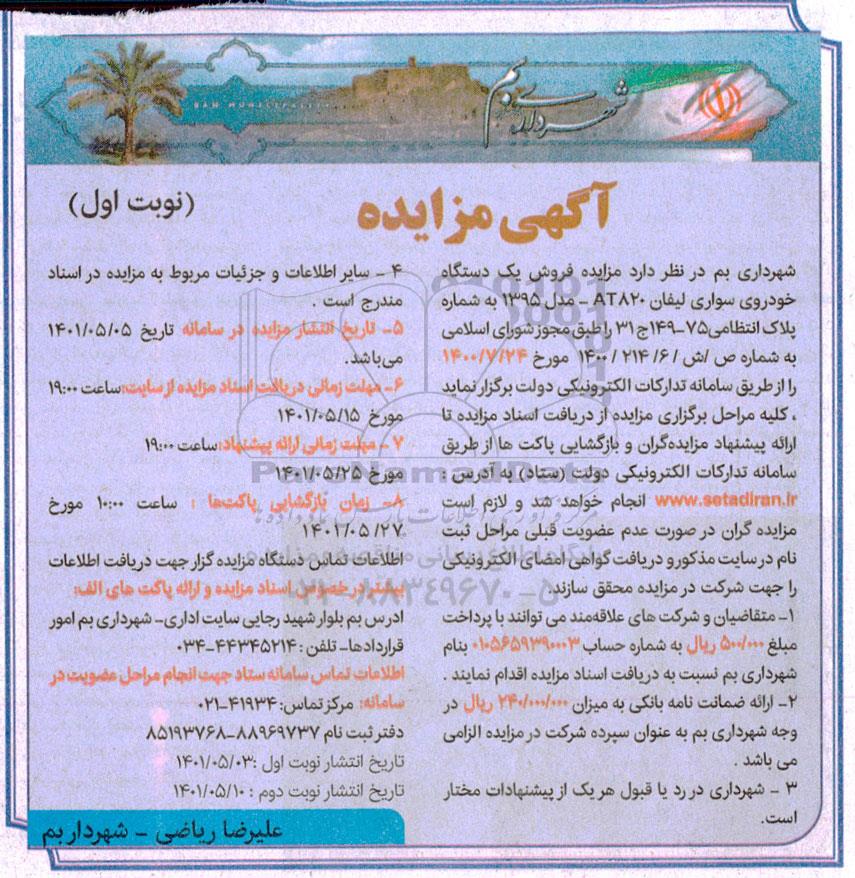 شهرداری بم
BAM MUNICIPALITY
آگهی مزایده
(نوبت اول)
شهرداری بم در نظر دارد مزایده فروش یک دستگاه
خودروی سواری لیفان AT۸۲۰ - مدل ۱۳۹۵ به شماره
پلاک انتظامی ۷۵-۱۴۹ج۳۱ را طبق مجوز شورای اسلامی
به شماره ص /ش / ۶/ ۲۱۴ / ۱۴۰۰ مورخ ۱۴۰۰/۷/۲۴
را از طریق سامانه تدارکات الکترونیکی دولت برگزار نماید
، کلیه مراحل برگزاری مزایده از دریافت اسناد مزایده تا
ارائه پیشنهاد مزایده‌گران و بازگشایی پاکت ها از طریق
سامانه تدارکات الکترونیکی دولت (ستاد) به آدرس :
www.setadiran.ir انجام خواهد شد و لازم است
مزایده گران در صورت عدم عضویت قبلی مراحل ثبت
نام در سایت مذکور و دریافت گواهی امضای الکترونیکی
را جهت شرکت در مزایده محقق سازند.
۱- متقاضیان و شرکت های علاقه‌مند می توانند با پرداخت
مبلغ ۵۰۰/۰۰۰ ریال به شماره حساب ۰۱۰۵۶۵۹۳۹۰۰۰۳ بنام
شهرداری بم نسبت به دریافت اسناد مزایده اقدام نمایند .
۲- ارائه ضمانت نامه بانکی به میزان ۲۴۰/۰۰۰/۰۰۰ ریال در
وجه شهرداری بم به عنوان سپرده شرکت در مزایده الزامی
می باشد .
۳ - شهرداری در رد یا قبول هر یک از پیشنهادات مختار
است.
۴ - سایر اطلاعات و جزئیات مربوط به مزایده در اسناد
مندرج است .
۵- تاریخ انتشار مزایده در سامانه تاریخ ۱۴۰۱/۰۵/۰۵
می‌باشد.
۶- مهلت زمانی دریافت اسناد مزایده از سایت: ساعت ۱۹:۰۰
مورخ ۱۴۰۱/۰۵/۱۵
۷ - مهلت زمانی ارائه پیشنهاد: ساعت ۱۹:۰۰
مورخ ۱۴۰۱/۰۵/۲۵
۸- زمان بازگشایی پاکت‌ها : ساعت ۱۰:۰۰ مورخ
۱۴۰۱/۰۵/۲۷
اطلاعات تماس دستگاه مزایده گزار جهت دریافت اطلاعات
بیشتر در خصوص اسناد مزایده و ارائه پاکت های الف:
ادرس بم بلوار شهید رجایی سایت اداری- شهرداری بم امور
قراردادها- تلفن : ۴۴۳۴۵۲۱۴-۰۳۴
اطلاعات تماس سامانه ستاد جهت انجام مراحل عضویت در
سامانه: مرکز تماس: ۴۱۹۳۴-۰۲۱
دفتر ثبت نام ۸۸۹۶۹۷۳۷-۸۵۱۹۳۷۶۸
تاریخ انتشار نوبت اول : ۱۴۰۱/۰۵/۰۳
تاریخ انتشار نوبت دوم : ۱۴۰۱/۰۵/۱۰
علیرضا ریاضی - شهردار بم
ParsNamadData
۰۲۱-۸۸۳۴۹۶۷۰-۵